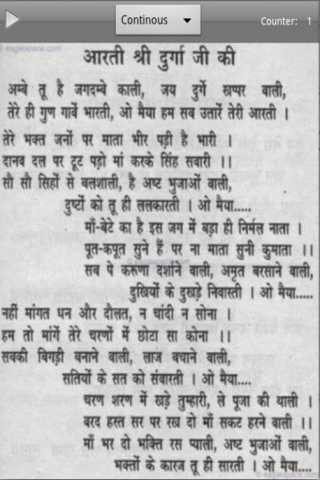 Continous
Counter: 1
© eaglespace.com
आरती श्री दुर्गा जी की
अम्बे तू है जगदम्बे काली, जय दुर्गे खप्पर वाली,
तेरे ही गुण गावें भारती, ओ मैया हम सब उतारें तेरी आरती ।
तेरे भक्त जनों पर माता भीर पड़ी है भारी ।
दानव दल पर टूट पड़ो माँ करके सिंह सवारी ।।
सौ सौ सिहों से बलशाली, है अष्ट भुजाओं वाली,
दुष्टों को तू ही ललकारती । ओ मैया.....
माँ-बेटे का है इस जग में बड़ा ही निर्मल नाता ।
पूत-कपूत सुने हैं पर ना माता सुनी कुमाता ।।
सब पे करूणा दर्शाने वाली, अमृत बरसाने वाली,
दुखियों के दुखड़े निवारती । ओ मैया.....
नहीं मांगत धन और दौलत, न चांदी न सोना ।
हम तो मांगें तेरे चरणों में छोटा सा कोना ।।
सबकी बिगड़ी बनाने वाली, लाज बचाने वाली,
सतियों के सत को संवारती । ओ मैया....
चरण शरण में खड़े तुम्हारी, ले पूजा की थाली ।
बरद हस्त सर पर रख दो माँ सकट हरने वाली ।।
माँ भर दो भक्ति रस प्याली, अष्ट भुजाओं वाली,
भक्तों के कारज तू ही सारती । ओ मैया....